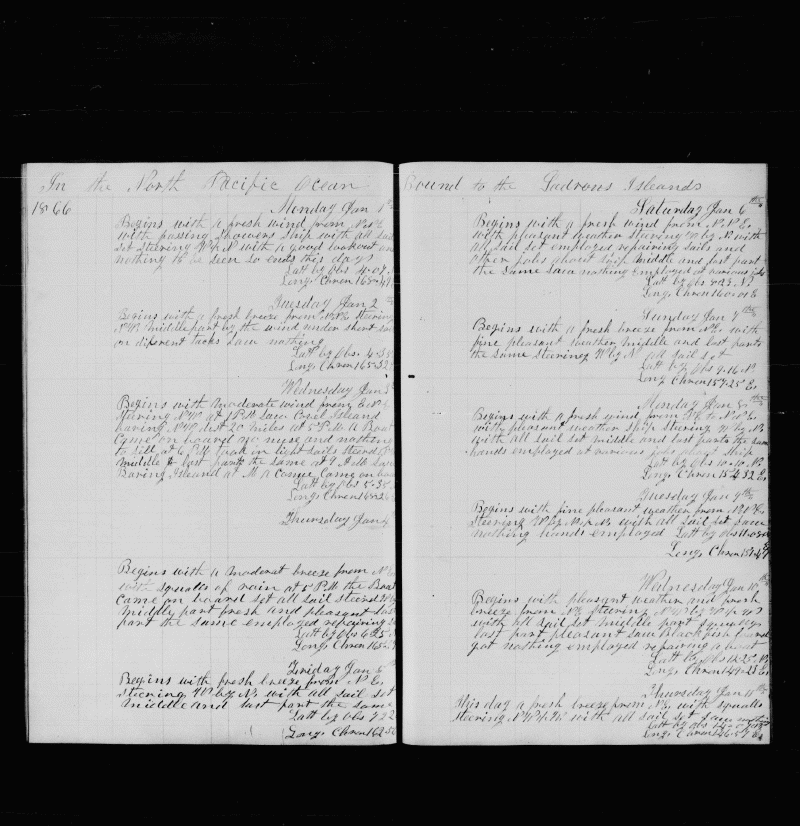 In the North Pacific Ocean
1866
Monday Jan 1st
Begins with a fresh wind from
with passing showers Ship with all sail
set steering W by N with a good lookout and
nothing to be seen so ends this day
Latt by Obs 4.07
Long Chron 165.49
Tuesday Jan 2
Begins with a fresh breeze from N.E. steering
N.W. Middle part by the wind under short sail
on diferent tacks Saw nothing
Latt by Obs. 4.38
Long Chron 165.32
Wednesday Jan 3
Begins with Moderate wind from E.N.E.
Steering N.W. at 1 P.M. Saw Island
baring N.W. dist 20 miles at 5 P.M. A Boat
Came on board no nuse and nothing
to sell at 6 P.M. took in light sails steerd
Middle & last parts the same at 9 A.M. Saw
Baring Island at M. a Canoe Came on board
Latt by Obs 5.35
Long Chron 165.26
Thursday Jan 4
Begins with a Moderat breeze from N.E.
with squalls of rain at 5 P.M. the Boat
Came on board set all sail steerd
Middle part fresh and pleasant last
part the same employed repairing
Latt by Obs 6.25
Long Chron 165
Friday Jan 5
Begins with fresh breeze from N.E.
steering W by N. with all sail set
Middle and last part the same
Latt by Obs 7.22
Long Chron 162.50
Bound to the Ladrons Islands
Saturday Jan 6th
Begins with a fresh wind from N.N.E.
with pleasant weather steering W by N with
all sail set employed repairing sails and
other jobs about Ship Middle and last part
the same Saw nothing Employed at various jobs
Latt by Obs 8.25 N.
Long Chron 160.01 E
Sunday Jan 7th
Begins with a fresh breeze from N.E. with
fine pleasant weather Middle and last parts
the same steering W by N all sail set
Latt by Obs 9.16 N
Long Chron 157.25 E.
Monday Jan 8th
Begins with a fresh wind from N.E. to N.N.E.
with pleasant weather Ship steering W by N.
with all sail set Middle and last parts the same
hands employed at various jobs about Ship
Latt by Obs 10.10 N.
Long Chron 154.32 E.
Tuesday Jan 9th
Begins with fine pleasant weather from N.N.E.
Steering W by N. with all sail set Saw
nothing hands employed Latt by Obs
Long Chron 151.47
Wednesday Jan 10th
Begins with pleasant weather and fresh
breeze from N.E. steering
with all sail set middle part squally
last part pleasant Saw Blackfish lowered
got nothing employed repairing a boat
Latt by Obs 12.25 N.
Long Chron 149.23 E.
Thursday Jan 11th
This day a fresh breeze from N.E. with squalls
steering with all sail set Saw nothing
Latt by Obs
Long Chron 146.57 E.